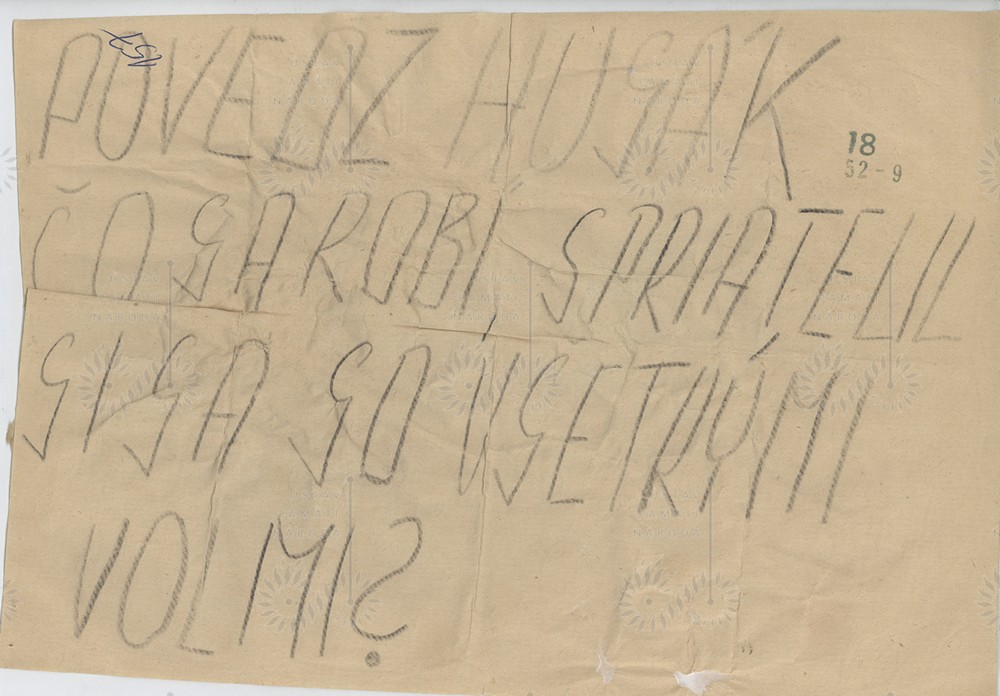 POVEDZ HUSÁK
18
52-9
ČO SA ROBÍ SPRIATELIL
SI SA SO VSETKÝMI
VOLMI?